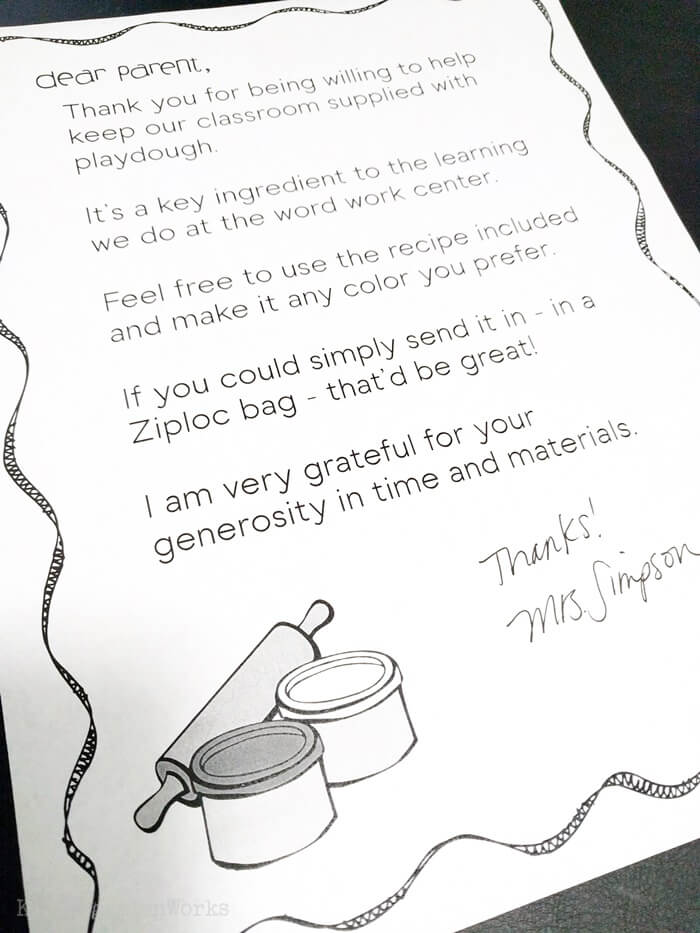 dear parent,
Thank you for being willing to help
keep our classroom supplied with
playdough.
It's a key ingredient to the learning
we do at the word work center.
Feel free to use the recipe included
and make it any color you prefer.
If you could simply send it in - in a
Ziploc bag - that'd be great!
I am very grateful for your
generosity in time and materials.
Thanks!
Mrs. Simpson